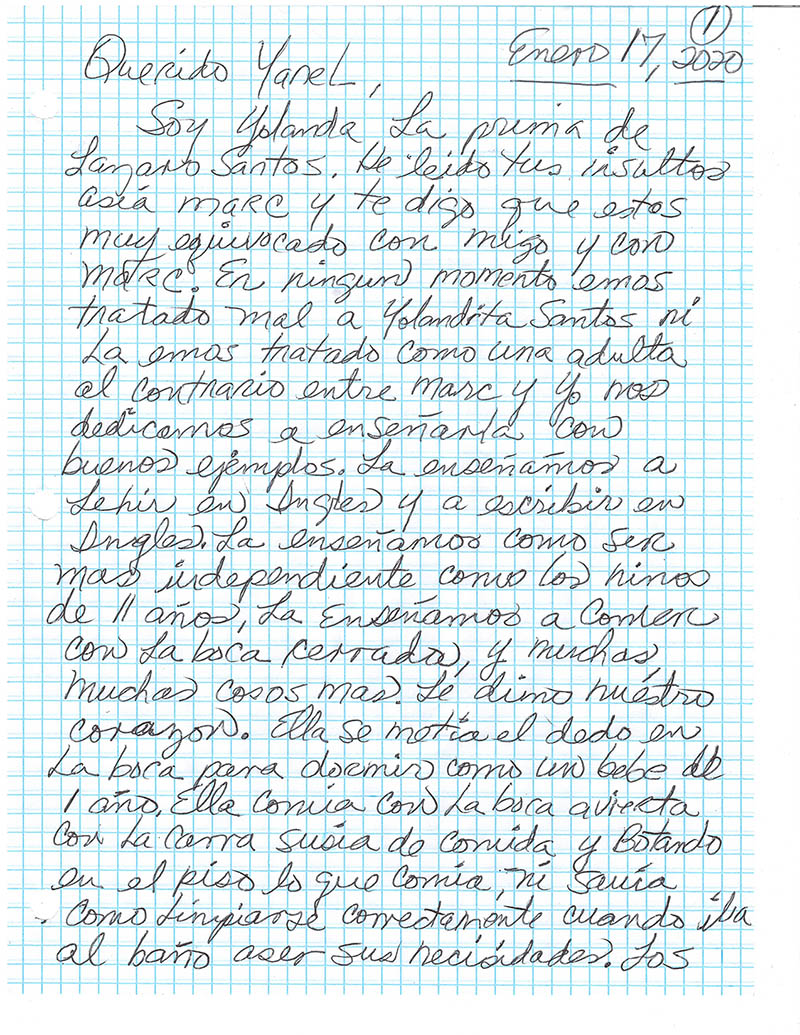 1
Enero 17, 2020
Querido Yanel,
Soy Yolanda La prima de
Lazaro Santos. He leido tus insultos
asiá marc y te digo que estos
muy equivocado con migo y con
marc. En ningun momento emos
tratado mal a Yolandita Santos ni
La emos tratado como una adulta
al contrario entre marc y Yo nos
dedicamos a enseñarla con
buenos ejemplos. La enseñamos a
Lehir en Ingles y a escribir en
Ingles. La enseñamos como ser
mas independiente como los ninos
de 11 años, La Enseñamos a Comer
con La boca cerrada, y muchas,
muchas cosos mas. Le dimo nuéstro
corazon. Ella se metía el dedo en
La boca para doermir como un bebe de
1 año. Ella Comia con La boca avierta
con La Carra susia de comida y Botando
en el piso lo que comia, ni savia
como Limpiarse correctamente cuando iba
al baño aser sus necisidades. Los